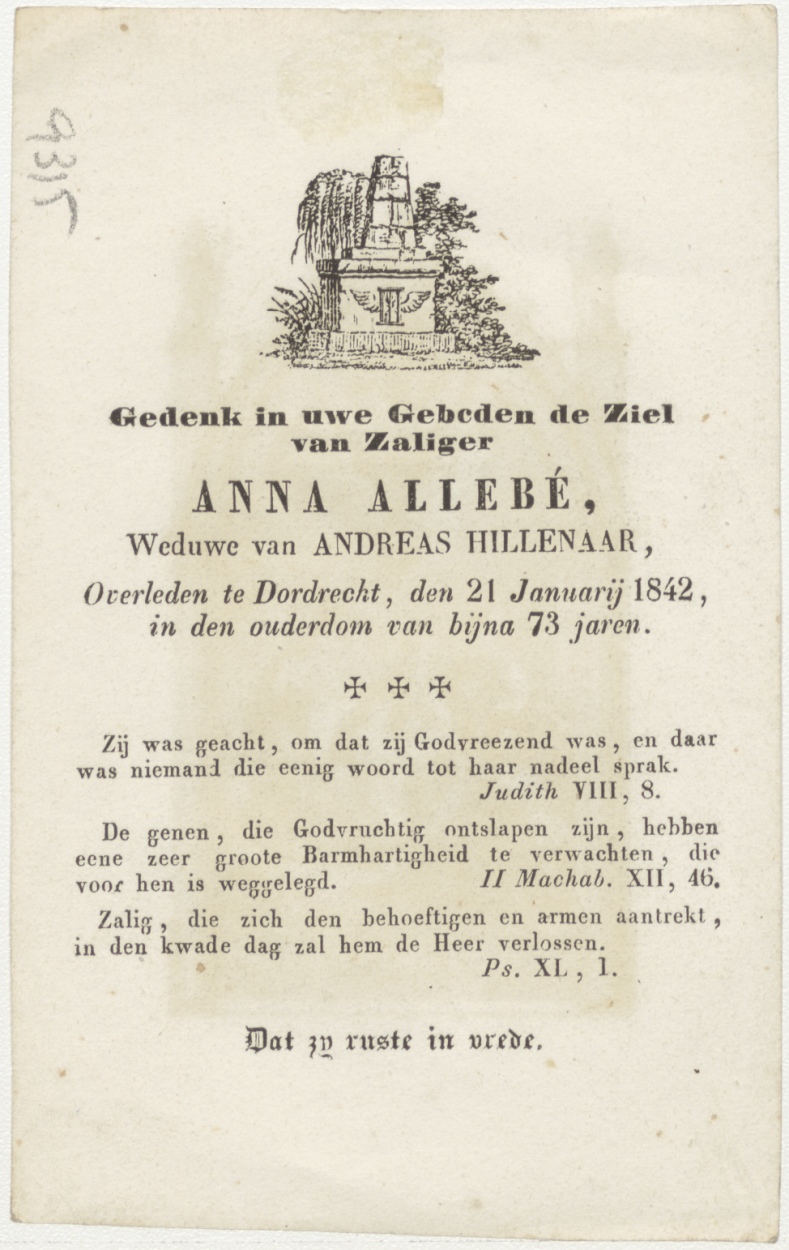 9315
Gedenk in uwe Gebeden de Ziel
van Zaliger
ANNA ALLEBÉ,
Weduwe van ANDREAS HILLENAAR,
Overleden te Dordrecht, den 21 Januarij 1842,
in den ouderdom van bijna 73 jaren.
✠ ✠ ✠
Zij was geacht, om dat zij Godvreezend was, en daar
was niemand die eenig woord tot haar nadeel sprak.
Judith VIII, 8.
De genen, die Godvruchtig ontslapen zijn, hebben
eene zeer groote Barmhartigheid te verwachten, die
voor hen is weggelegd. II Machab. XII, 46.
Zalig, die zich den behoeftigen en armen aantrekt,
in den kwade dag zal hem de Heer verlossen.
Ps. XL, 1.
Dat zy ruste in vrede.